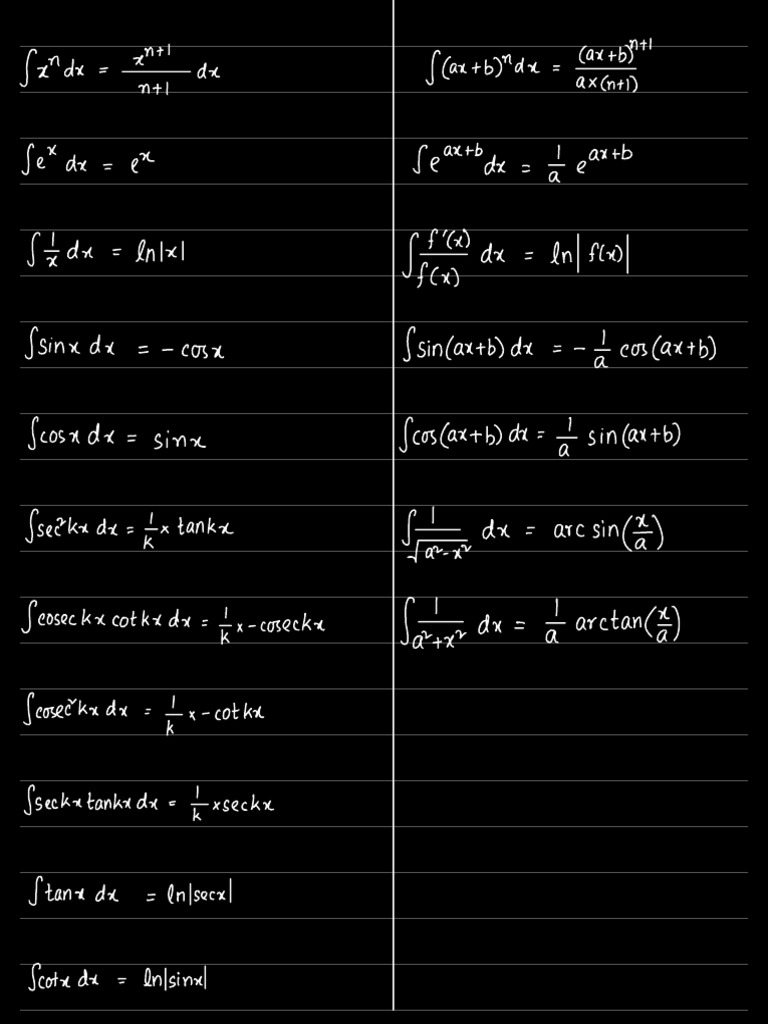 ∫xⁿ dx = xⁿ⁺¹/n+1 dx
∫eˣ dx = eˣ
∫1/x dx = ln|x|
∫sinx dx = - cosx
∫cosx dx = sinx
∫sec²kx dx = 1/k × tankx
∫coseckx cotkx dx = 1/k × -coseckx
∫cosec²kx dx = 1/k × -cotkx
∫seckx tankx dx = 1/k × seckx
∫tanx dx = ln|secx|
∫cotx dx = ln|sinx|
∫(ax+b)ⁿ dx = (ax+b)ⁿ⁺¹/a×(n+1)
∫e^(ax+b) dx = 1/a e^(ax+b)
∫f'(x)/f(x) dx = ln|f(x)|
∫sin(ax+b) dx = - 1/a cos(ax+b)
∫cos(ax+b) dx = 1/a sin(ax+b)
∫1/√(a²-x²) dx = arc sin(x/a)
∫1/(a²+x²) dx = 1/a arctan(x/a)